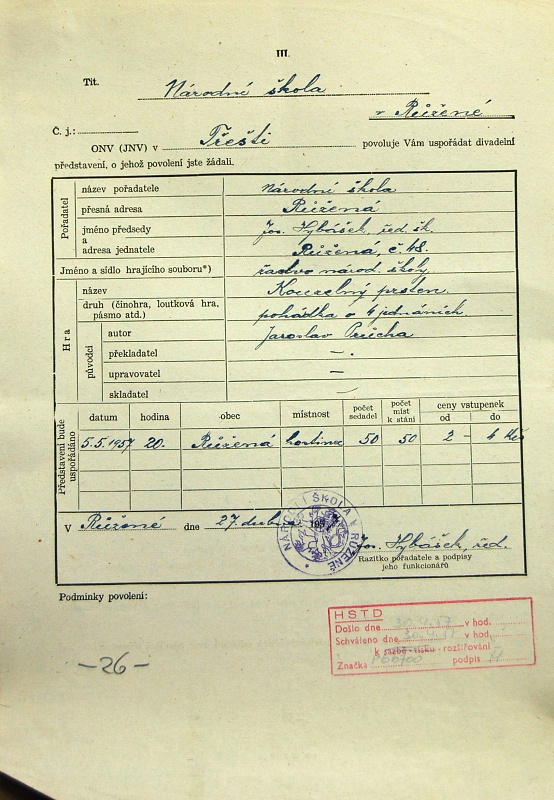 III.
Tit. Národní škola
v Růžené
Č. j.:
ONV (JNV) v Třešti povoluje Vám uspořádat divadelní
představení, o jehož povolení jste žádali.
Pořadatel
název pořadatele Národní škola
přesná adresa Růžená
jméno předsedy Jos. Hybášek, řed. šk.
a
adresa jednatele Růžená, č. 48.
Jméno a sídlo hrajícího souboru*) žactvo národ. školy
Hra
název Kouzelný prsten
druh (činohra, loutková hra, pásmo atd.) pohádka o 4 jednáních
původci
autor Jaroslav Průcha
překladatel —.
upravovatel —
skladatel —
Představení bude uspořádáno
datum hodina obec místnost počet sedadel počet míst k stání ceny vstupenek od do
5.5.1957 20. Růžená hostinec 50 50 2 - 4 Kčs
V Růžené dne 27. dubna 195
NÁRODNÍ ŠKOLA V RŮŽENÉ
Jos. Hybášek, řed.
Razítko pořadatele a podpisy
jeho funkcionářů
Podmínky povolení:
HSTD
Došlo dne 30.4.57 v hod.
Schváleno dne 30.4.57 v hod.
k sazbě - tisku - rozšiřování
Značka podpis
—26—